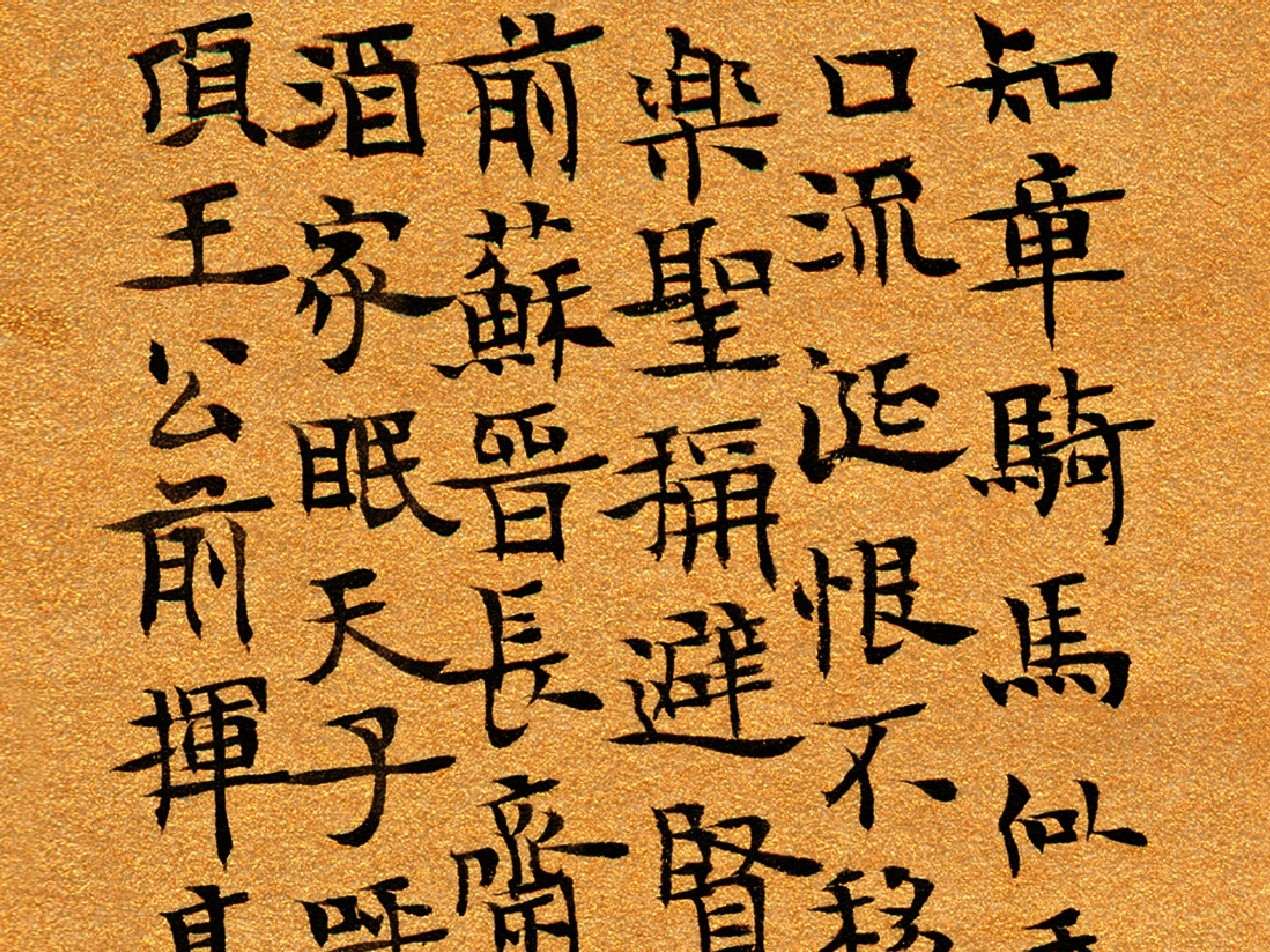 知章騎馬似
口流涎恨不移
楽聖稱避賢
前蘇晉長齋
酒家眠天子呼
頂王公前揮